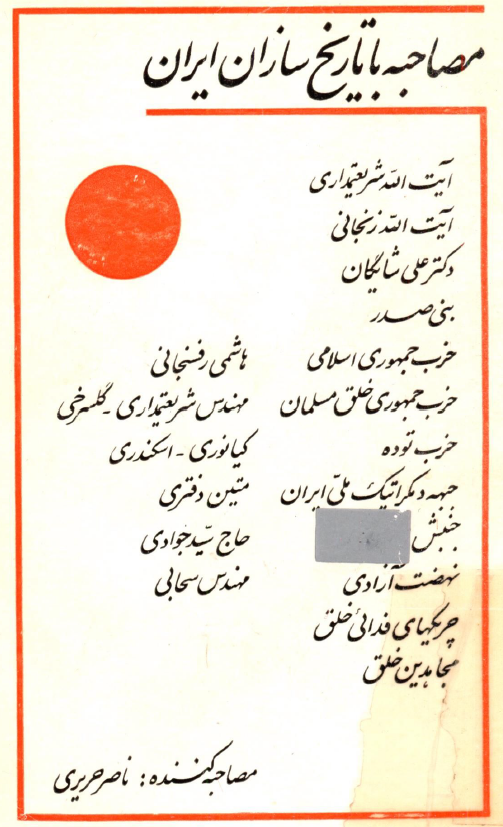 مصاحبه با تاریخ سازان ایران
آیت اللّه شریعتمداری
آیت اللّه زنجانی
دکتر علی شایگان
بنی صدر
حزب جمهوری اسلامی هاشمی رفسنجانی
حزب جمهوری خلق مسلمان مهندس شریعتمداری - گلسرخی
حزب توده کیانوری - اسکندری
جبهه دمکراتیک ملّی ایران متین دفتری
جنبش حاج سیّد جوادی
نهضت آزادی مهندس سحابی
چریکهای فدائی خلق
مجاهدین خلق
مصاحبه کننده : ناصر حریری